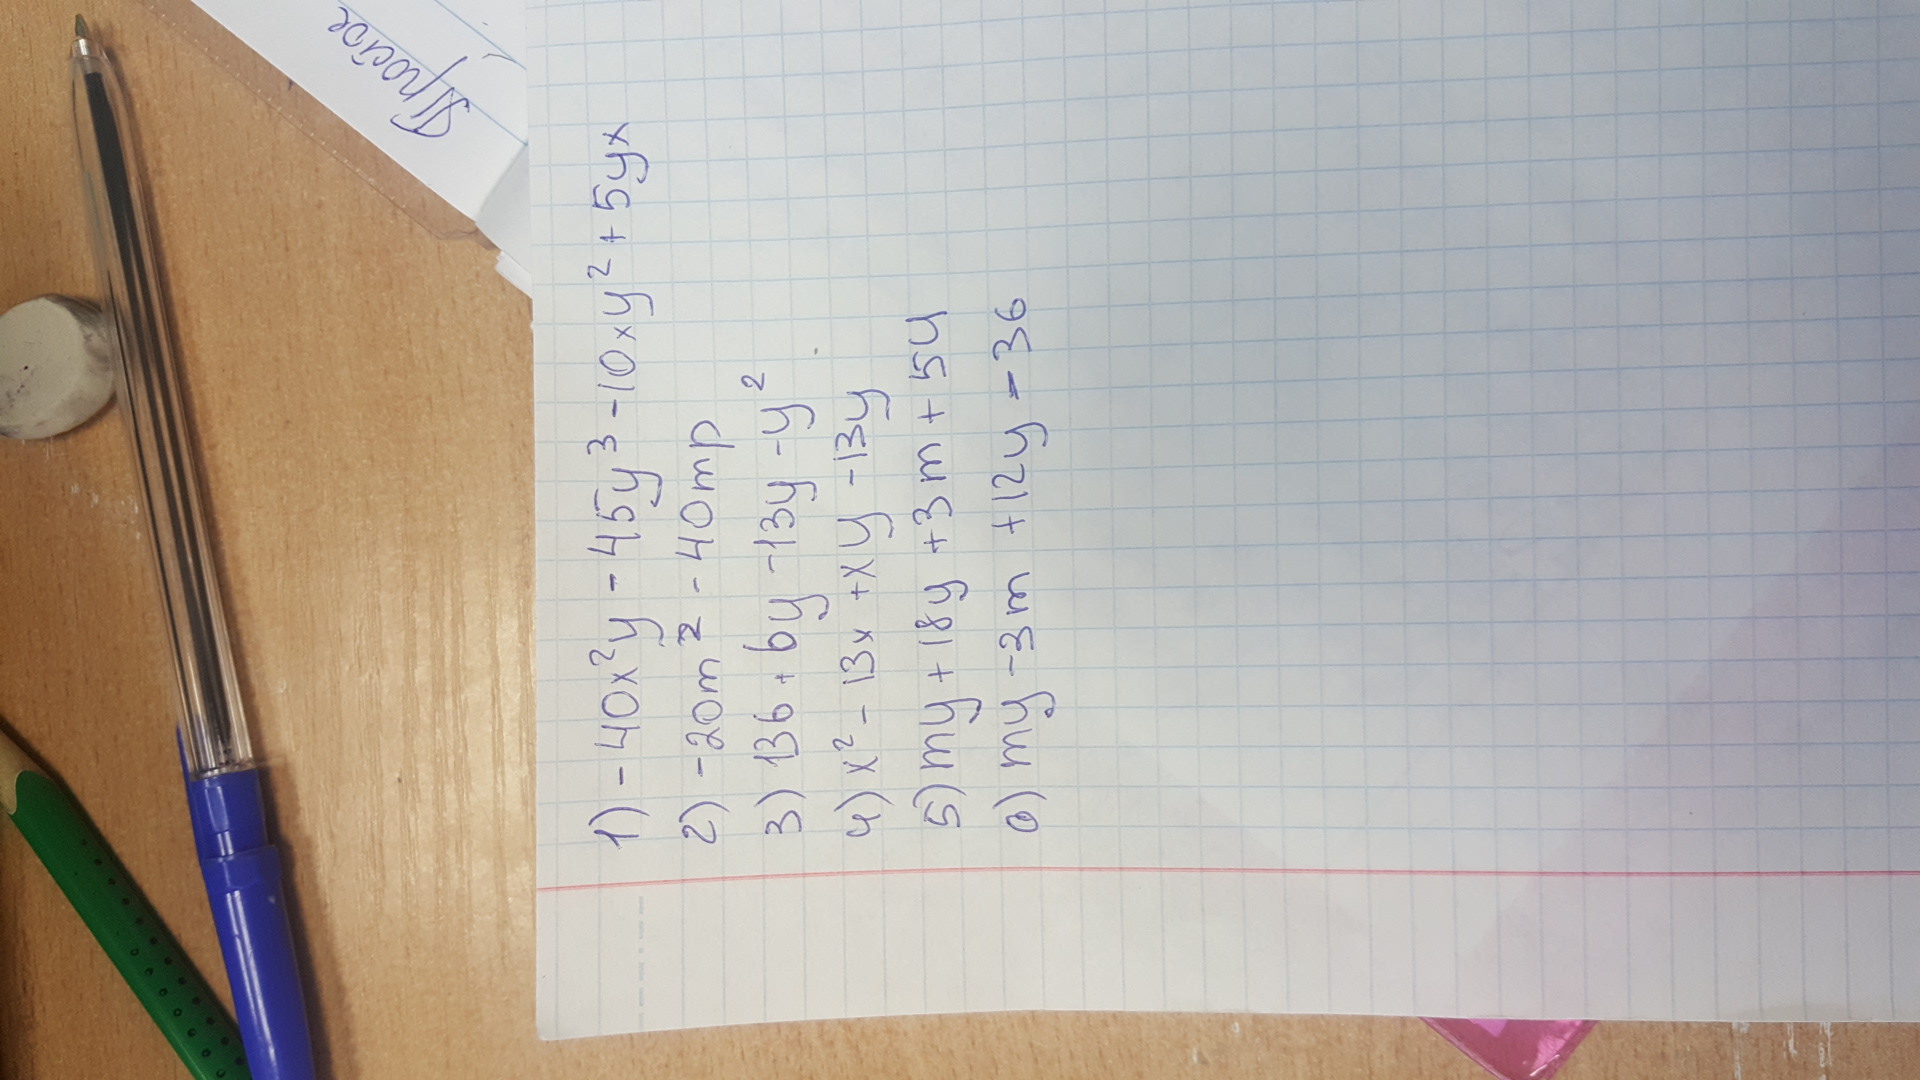 Простое
1) -40x²y - 45y³ -10xy² + 5yx
2) -20m² - 40mp
3) 136 + 6y -13y -y²
4) x² - 13x + xy -13y
5) my + 18y + 3m + 54
6) my -3m +12y - 36